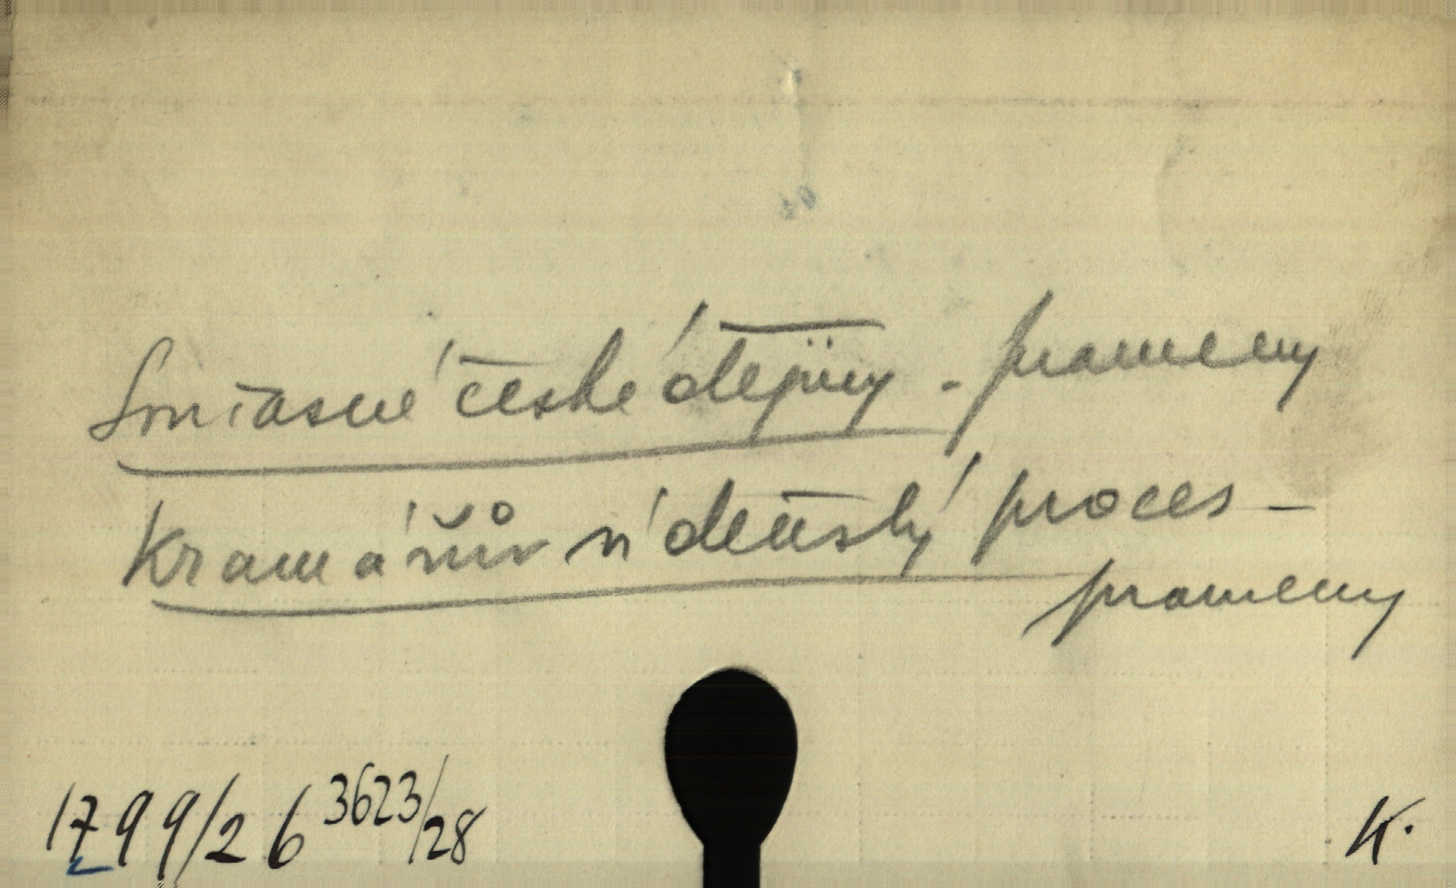 Současné české dějiny - prameny
Kramářův vídeňský proces -
prameny
1799/26 3623/28
K.